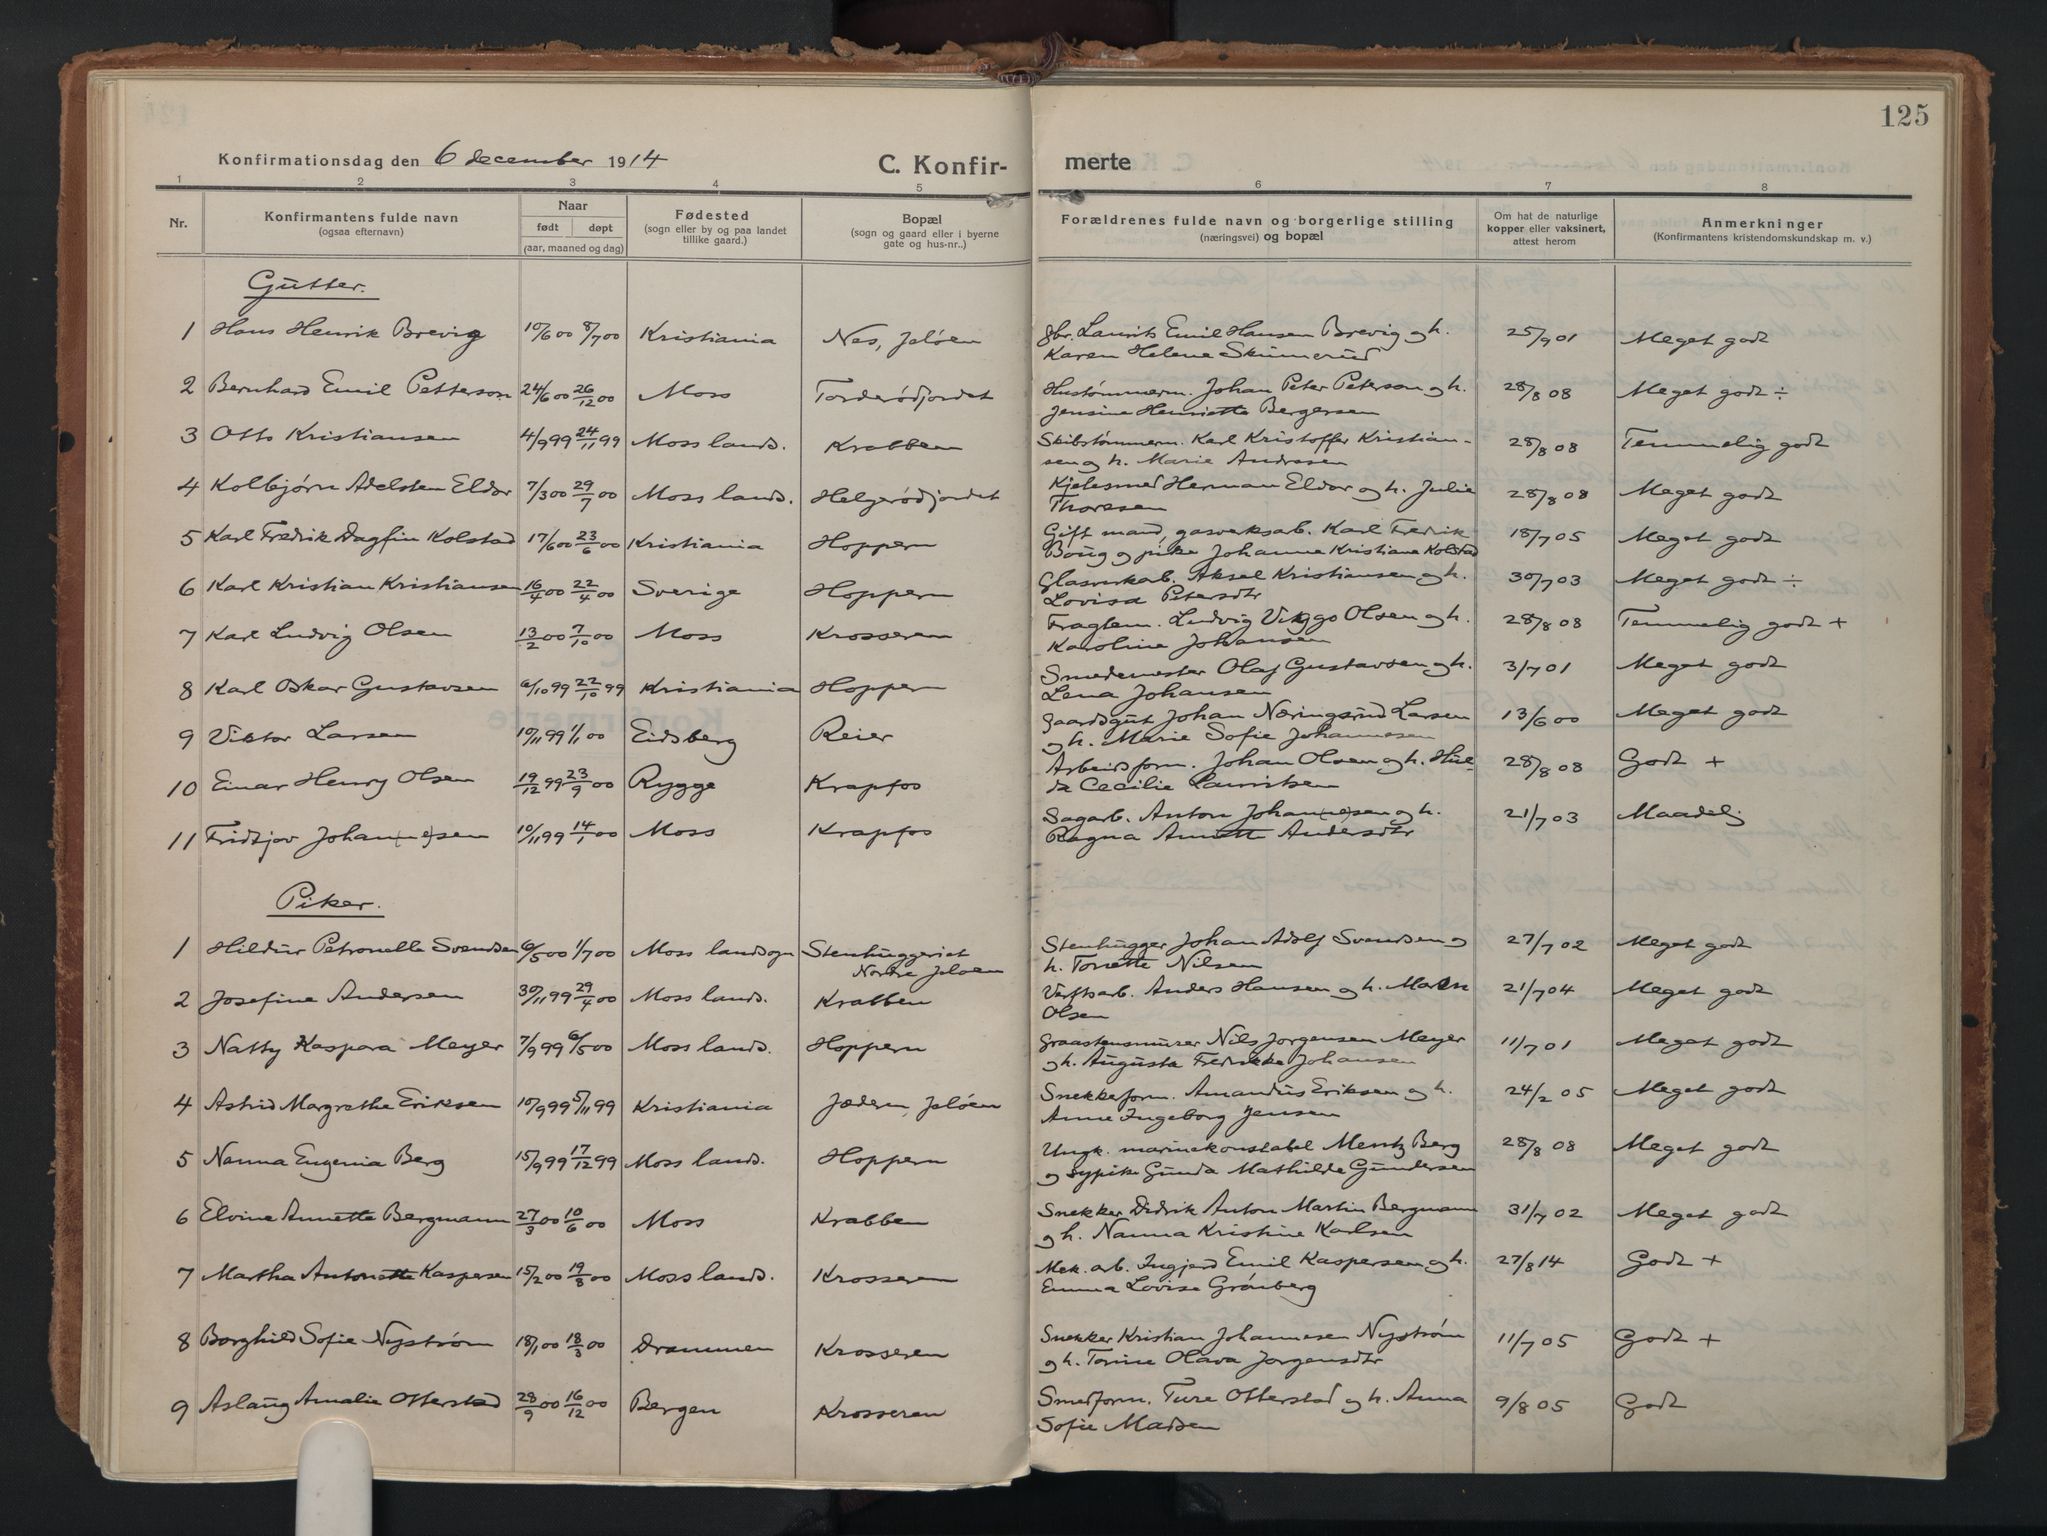 125
Konfirmationsdag den 6 december 1914
C. Konfir- merte
1 2 3 4 5 6 7 8
Nr. Konfirmantens fulde navn (ogsaa efternavn) Naar født døpt (aar, maaned og dag) Fødested (sogn eller by og paa landet tillike gaard.) Bopæl (sogn og gaard eller i byerne gate og hus-nr..) Forældrenes fulde navn og borgerlige stilling (næringsvei) og bopæl Om hat de naturlige kopper eller vaksinert, attest herom Anmerkninger (Konfirmantens kristendomskundskap m. v.)
Gutter.
1 Hans Henrik Brevig 10/6 00 8/7 00 Kristiania Nes, Jeløen Gbr. Laurits Emil Hansen Brevig og h. 25/9 01 Meget godt
Karen Helene Skimerud
2 Bernhard Emil Petterson 24/6 00 26/12 00 Moss Torderødjordet Hustømmerm. Johan Peter Peterson og h. 28/8 08 Meget godt ÷
Jensine Henriette Bergersen
3 Otto Kristiansen 4/9 99 24/11 99 Moss lands. Krabben Skibstømmerm. Karl Kristoffer Kristian- 28/8 08 Temmelig godt
sen og h. Marie Andresen
4 Kolbjørn Adelsten Eldor 7/3 00 29/7 00 Moss lands. Helgerødjordet Kjelesmed Herman Eldor og h. Julie 28/8 08 Meget godt
Thoresen
5 Karl Fredrik Dagfin Kolstad 17/6 00 23/6 00 Kristiania Hoppern Gift mand, gasverksarb. Karl Fredrik 18/7 05 Meget godt
Boug og pike Johanne Kristiane Kolstad
6 Karl Kristian Kristiansen 16/4 00 22/4 00 Sverige Hoppern Glasverkab. Aksel Kristiansen og h. 30/7 03 Meget godt ÷
Lovisa Petersdtr
7 Karl Ludvig Olsen 13/2 00 7/10 00 Moss Krosseren Fragtem. Ludvig Viggo Olsen og h. 28/8 08 Temmelig godt +
Karoline Johansen
8 Karl Oskar Gustavsen 6/10 99 22/10 99 Kristiania Hoppern Smedemester Olaf Gustavsen og h. 3/7 01 Meget godt
Lena Johansen
9 Viktor Larsen 10/11 99 1/1 00 Eidsberg Reier Gaardsgut Johan Næringsrud Larsen 13/6 00 Meget godt
og h. Marie Sofie Johannesen
10 Einar Henry Olsen 19/12 99 23/9 00 Rygge Krapfos Arbeidsform. Johan Olsen og h. Hul- 28/8 08 Godt +
da Cecilie Lauritsen
11 Fridtjov Johan(ne)sen 10/11 99 14/1 00 Moss Krapfos Sagarb. Anton Johan(ne)sen og h. 21/7 03 Maadelig
Ragna Annette Andersdtr
Piker.
1 Hildur Petronelle Svendsen 6/5 00 1/7 00 Moss landsogn Stenhuggeriet Stenhugger Johan Adolf Svendsen og 27/7 02 Meget godt
Nordre Jeløen h. Tonette Nilsen
2 Josefine Andersen 30/11 99 29/4 00 Moss lands. Krabben Verftsarb. Anders Hansen og h. Maren 21/7 04 Meget godt
Olsen
3 Natty Kaspara Meyer 7/9 99 6/5 00 Moss lands. Hoppern Graastensmurer Nils Jorgensen Meyer 11/7 01 Meget godt
og h. Augusta Fredrikke Johansen
4 Astrid Margrethe Eriksen 10/9 99 5/11 99 Kristiania Jædern, Jeløen Snekkerform. Amandus Eriksen og h. 24/2 05 Meget godt
Anne Ingeborg Jensen
5 Nanna Eugenia Berg 15/9 99 17/12 99 Moss lands. Hoppern Ungk. marinekonstabel Mentz Berg 28/8 08 Meget godt
og sypike Gunda Mathilde Gundersen
6 Elvine Annette Bergmann 27/3 00 10/6 00 Moss Krabben Snekker Didrik Anton Martin Bergmann 31/7 02 Meget godt
og h. Nanna Kristine Karlsen
7 Martha Antonette Kaspersen 15/2 00 19/8 00 Moss lands. Krosseren Mek. arb. Ingjerd Emil Kaspersen og h. 27/8 14 Godt +
Emma Lovise Grönberg
8 Borghild Sofie Nystrøm 18/1 00 18/3 00 Drammen Krosseren Snekker Kristian Johannesen Nystrøm 11/7 05 Godt +
og h. Torine Olava Jorgensdtr
9 Aslaug Amalie Otterstad 28/9 00 16/12 00 Bergen Krosseren Smedform. Ture Otterstad og h. Anna 9/8 05 Godt
Sofie Madsen